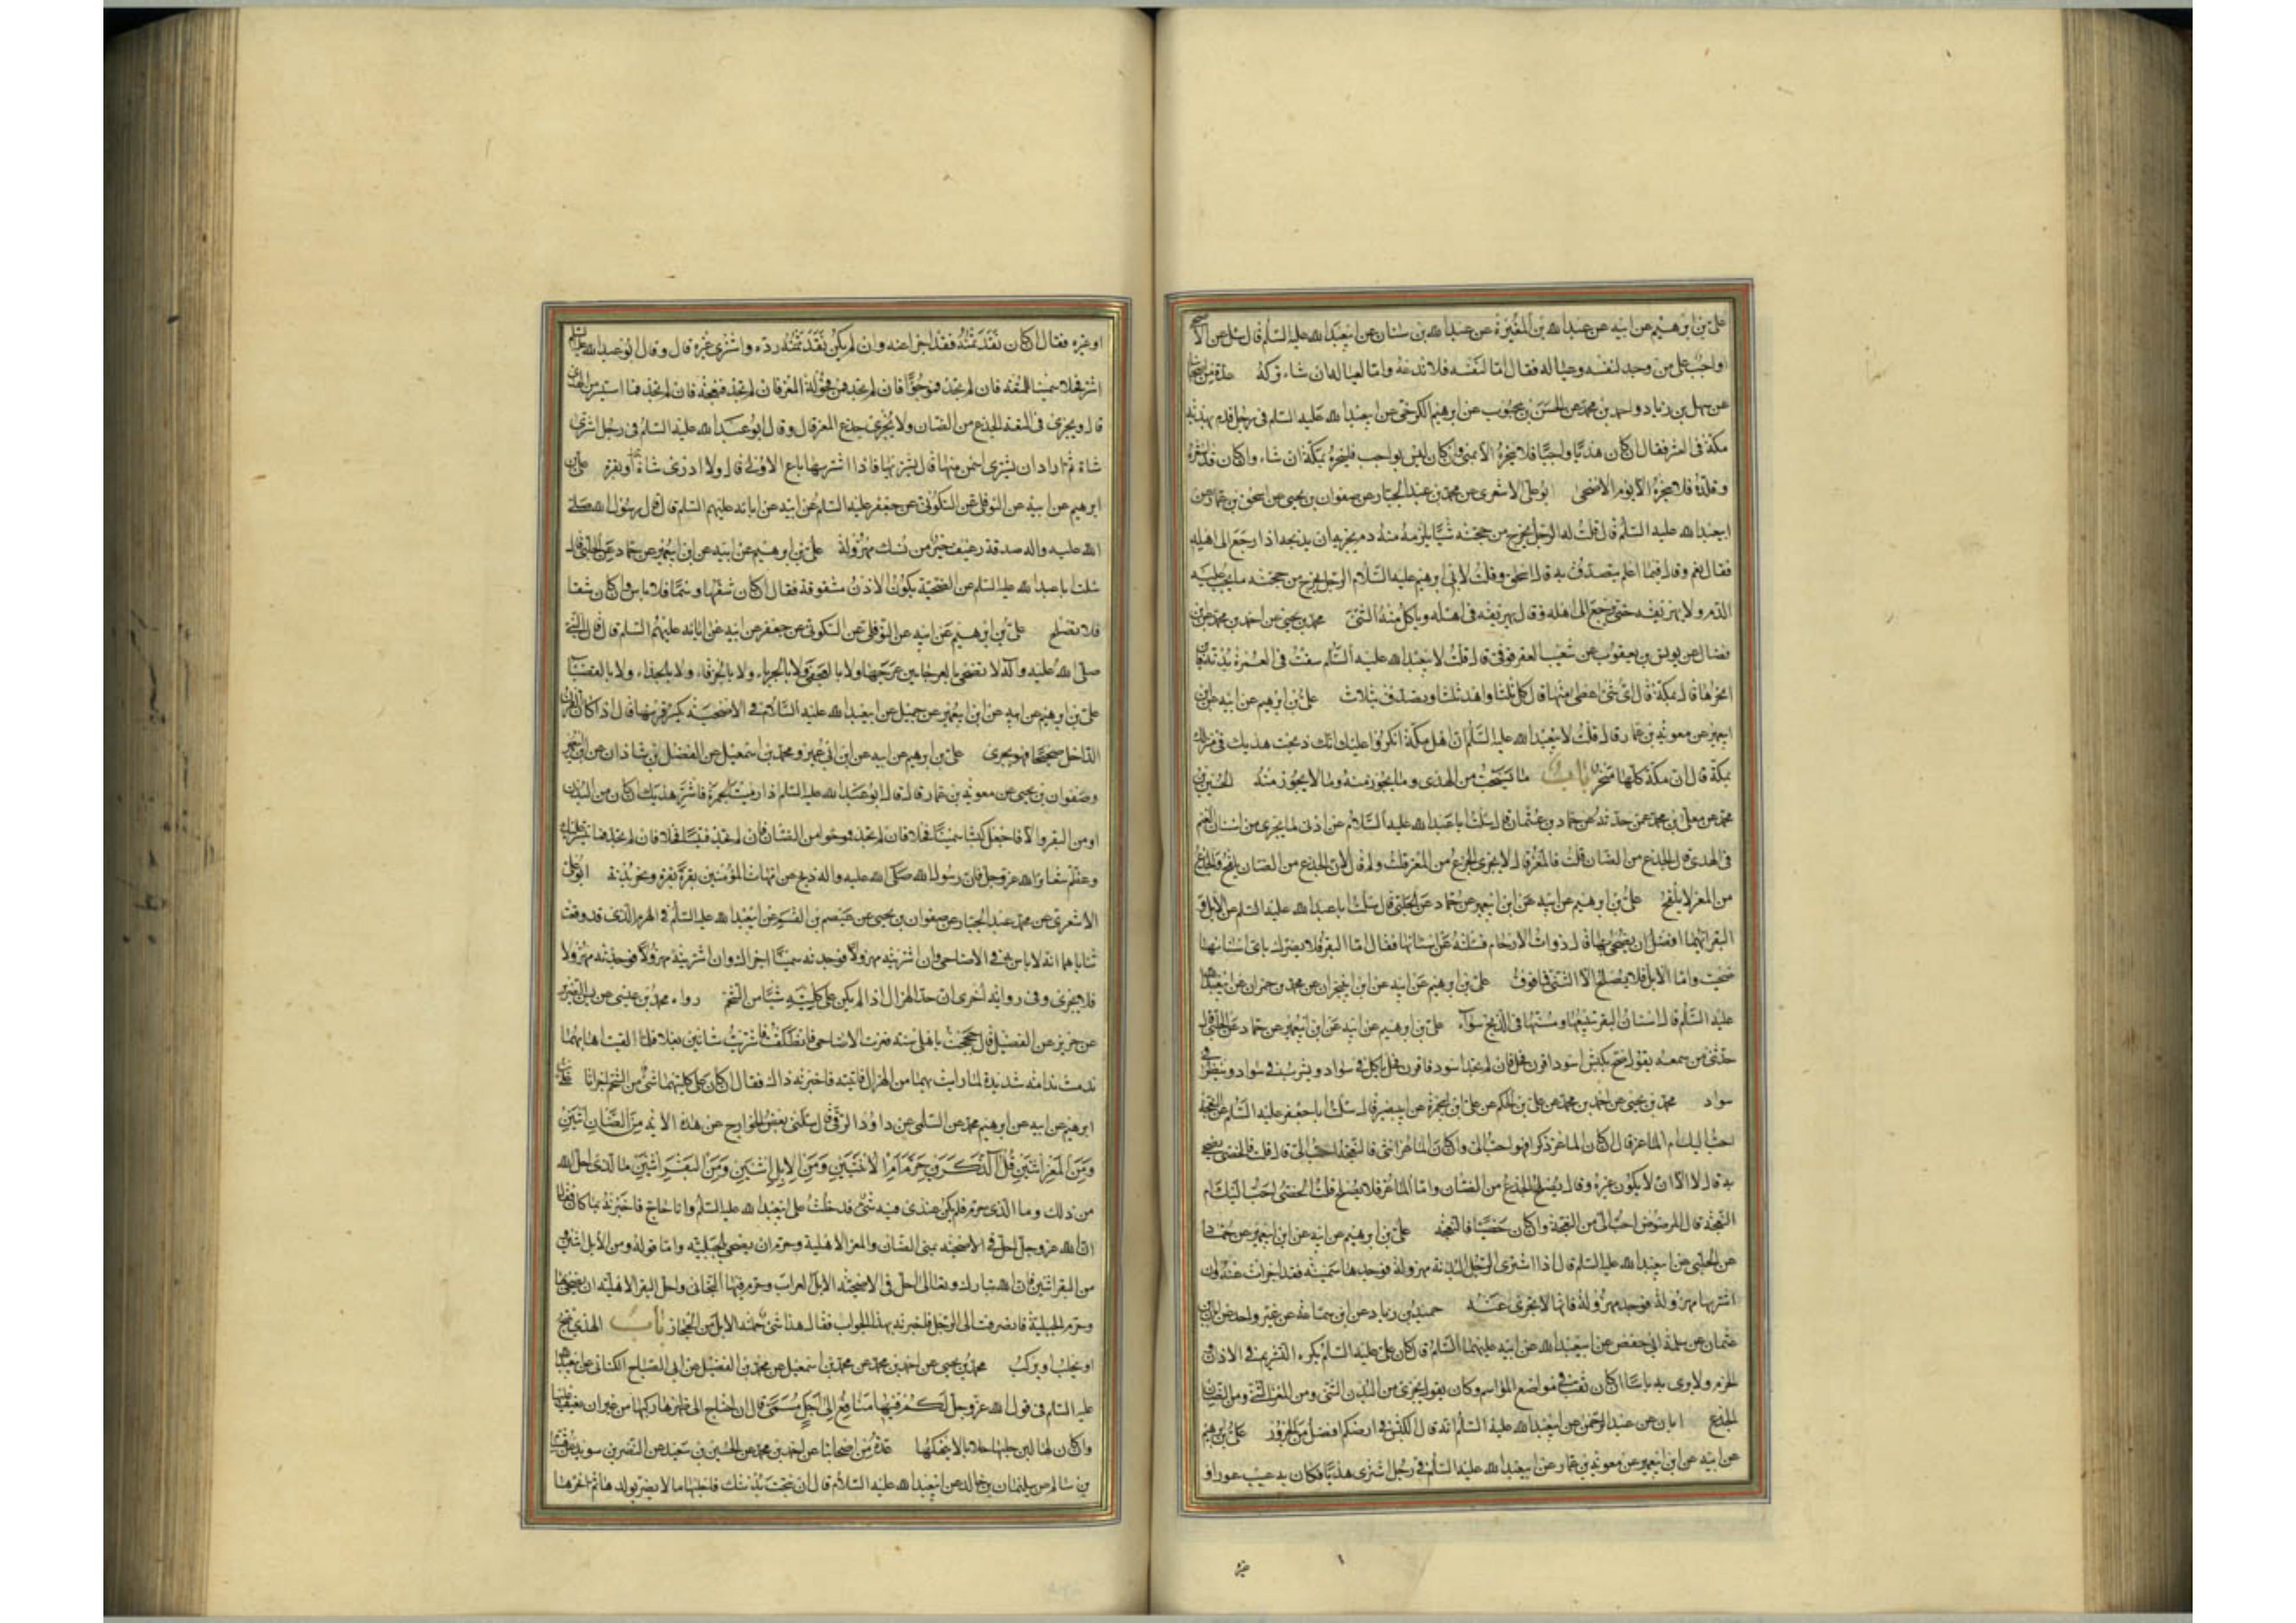 علی بن ابرهیم عن ابیه عن عبدالله بن المغیرة عن عبدالله بن سنان عن ابیعبدالله علیه السلام قال سئل عن الاضحی
اواجب علی من وجد لنفسه وعیاله فقال اما لنفسه فلا تدعه واما لعیاله ان شاء ترکه عدة من اصحابنا
عن سهل بن زیاد واحمد بن محمد عن الحسن بن محبوب عن ابرهیم الکرخی عن ابیعبدالله علیه السلم فی رجل قدم بهدیه
مکة فی العشر فقال ان کان هدیا واجبا فلا ینحره الا بمنی وان کان لیس بواجب فلینحره بمکة ان شاء وان کان قد اشعره
وقلده فلا ینحره الا یوم الاضحی ابو علی الاشعری عن محمد بن عبد الجبار عن صفوان بن یحیی عن اسحق بن عمار عن
ابیعبدالله علیه السلم قال قلت له الرجل یخرج من حجته شیئا یلزمه منه دم یجزیه ان یذبحه اذا رجع الی اهله
فقال نعم وقال فیما اعلم یتصدق به قال اسحق وقلت لابی ابرهیم علیه السلام الرجل یخرج من حجته ما یجب علیه
الدم ولا یهریقه حتی یرجع الی اهله وقال یهریقه فی اهله ویاکل منه الشئ محمد بن یحیی عن احمد بن محمد عن ابن
فضال عن یونس بن یعقوب عن شعیب العقرقوفی قال قلت لابیعبدالله علیه السلم سقت فی العمرة بدنة فاین
انحرها قال بمکة قال ای شئ اعطی منها قال کل ثلثا واهد ثلثا وتصدق بثلث علی بن ابرهیم عن ابیه عن ابن
ابیعمیر عن معویه بن عمار قال قلت لابیعبدالله علیه السلم ان اهل مکة انکروا علیک انک ذبحت هدیک فی منزلک
بمکة قال ان مکة کلها منحر باب ما یستحب من الهدی وما یجوز منه وما لا یجوز منه الحسین بن
محمد عن معلی بن محمد عمن حدثه عن حماد بن عثمان قال سئلت اباعبدالله علیه السلام عن ادنی ما یجزی من اسنان الغنم
فی الهدی قال الجذع من الضان قلت فالمعز قال لا یجزی الجذع من المعز قلت ولم قال لان الجذع من الضان یلقح والجذع
من المعز لا یلقح علی بن ابرهیم عن ابیه عن ابن ابیعمیر عن حماد عن الحلبی قال سئلت اباعبدالله علیه السلم عن الابل و
البقر ایهما افضل ان یضحی بها قال ذوات الارحام فسئلته عن اسنانها فقال اما البقر فلا یضرک بای اسنانها
ضحیت واما الابل فلا یصلح الا الثنی فما فوق علی بن ابرهیم عن ابیه عن ابن ابینجران عن محمد بن حمران عن ابیعبدالله
علیه السلم قال اسنان البقر تبیعها ومسنها فی الذبح سواء علی بن ابرهیم عن ابیه عن ابن ابیعمیر عن حماد عن الحلبی قال
حدثنی من سمعه یقول ضح بکبش اسود اقرن فحل فان لم تجد اسود فاقرن فحل یاکل فی سواد ویشرب فی سواد وینظر فی
سواد محمد بن یحیی عن احمد بن محمد عن علی بن الحکم عن علی بن ابیحمزة عن ابیبصیر قال سئلت اباجعفر علیه السلم عن النعجة
احب الیک ام الماعز قال ان کان الماعز ذکرا فهو احب الی وان کان الماعز انثی فالنعجة احب الی قال قلت فالخصی یضحی
به قال لا الا ان لا یکون غیره وقال یصلح الجذع من الضان واما الماعز فلا یصلح قلت الخصی احب الیک ام
النعجة قال المرضوض احب الی من النعجة وان کان خصیا فالنعجة علی بن ابرهیم عن ابیه عن ابن ابیعمیر عن حماد
عن الحلبی عن ابیعبدالله علیه السلم قال اذا اشتری الرجل البدنة مهزولة فوجدها سمینة فقد اجزات عنه وان
اشتریها مهزولة فوجدها مهزولة فانها لا تجزی عنه حمید بن زیاد عن ابن سماعة عن غیر واحد عن ابان بن
عثمان عن سلمة ابی حفص عن ابیعبدالله عن ابیه علیهما السلم قال کان علی علیه السلم یکره التشریم فی الاذان
والخرم ولا یری به باسا ان کان ثقب فی مواضع المواسم وکان یقول یجزی من البدن الثنی ومن المعز الثنی ومن الضان
الجذع ابان عن عبد الرحمن عن ابیعبدالله علیه السلم انه قال الکبش فی ارضکم افضل من الجزور علی بن ابرهیم
عن ابیه عن ابن ابیعمیر عن معویه بن عمار عن ابیعبدالله علیه السلم فی رجل اشتری هدیا فکان به عیب عور او
اوغیره فقال ان کان نقد ثمنه فقد اجزا عنه وان لم یکن نقد ثمنه رده واشتری غیره قال وقال ابوعبدالله علیه السلم
اشتر فحلا سمینا للمتعه فان لم تجد فموجوا فان لم تجد فمن فحولة المعز فان لم تجد فنعجة فان لم تجد فما استیسر من الهدی
قال ویجزی فی المتعه الجذع من الضان ولا یجزی جذع المعز قال وقال ابوعبدالله علیه السلم فی رجل اشتری
شاة ثم اراد ان یشتری اسمن منها قال یشتریها فاذا اشتریها باع الاولی قال ولا ادری شاة او بقرة علی بن
ابرهیم عن ابیه عن النوفلی عن السکونی عن جعفر علیه السلم عن ابیه عن ابائه علیهم السلم قال قال رسول الله صلی
الله علیه واله صدقة رغیف خیر من نسک مهزولة علی بن ابرهیم عن ابیه عن ابن ابیعمیر عن حماد عن الحلبی قال
سئلت اباعبدالله علیه السلم عن الضحیة یکون الاذن مشقوقة فقال ان کان شقها وسما فلا باس وان کان شقا
فلا تصلح علی بن ابرهیم عن ابیه عن النوفلی عن السکونی عن جعفر عن ابیه عن ابائه علیهم السلم قال قال النبی
صلی الله علیه واله لا تضحی بالعرجا بین عرجها ولا بالعجفا ولا بالجرباء ولا بالخرقاء ولا بالجذاء ولا بالعضباء
علی بن ابرهیم عن ابیه عن ابن ابیعمیر عن جمیل عن ابیعبدالله علیه السلام فی الاضحیة یکسر قرنها قال اذا کان القرن
الداخل صحیحا فهو یجزی علی بن ابرهیم عن ابیه عن ابن ابی عمیر ومحمد بن اسمعیل عن الفضل بن شاذان عن ابن ابیعمیر
وصفوان بن یحیی عن معویه بن عمار قال قال ابوعبدالله علیه السلم اذا رمیت الجمرة فاشتر هدیک ان کان من البدن
اومن البقر والا فاجعل کبشا سمینا فحلا فان لم تجد فموجوا من الضان فان لم تجد فتیسا فحلا فان لم تجد فما تیسر علیک
وعظم شعایر الله عز وجل فان رسول الله صلی الله علیه واله ذبح عن امهات المؤمنین بقرة بقرة ونحر بدنة ابوعلی
الاشعری عن محمد عبد الجبار عن صفوان بن یحیی عن عیص بن القسم عن ابیعبدالله علیه السلم فی الهرم الذی قد وقعت
ثنایاه انه لا باس به فی الاضاحی وان اشتریته مهزولا فوجدته سمینا اجزاک وان اشتریته مهزولا فوجدته مهزولا
فلا یجزی وفی روایة اخری ان حد الهزال اذا لم یکن علی کلیتیه شیئا من الشحم رواه محمد بن عیسی عن یاسین الضریر
عن حریز عن الفضیل قال حججت باهلی سنة فعزت الاضاحی فانطلقت فاشتریت شاتین بغلا فلما القیت اهابهما
ندمت ندامة شدیدة لما رایت بهما من الهزال فاتیته فاخبرته ذاک فقال ان کان علی کلیتهما شئ من الشحم اجزاتا علی بن
ابرهیم عن ابیه عن ابرهیم محمد عن السلمی عن داود الرقی قال سئلنی بعض الخوارج عن هذه الایه من الضان اثنین
ومن المعز اثنین قل آلذکرین حرم ام الانثیین ومن الابل اثنین ومن البقر اثنین ما الذی احل الله
من ذلک وما الذی حرم فلم یکن عندی فیه شئ فدخلت علی ابیعبدالله علیه السلم وانا حاج فاخبرته بما کان فقال
ان الله عز وجل احل فی الاضحیة بمنی الضان والمعز الاهلیة وحرم ان یضحی بالجبلیة واما قوله ومن الابل اثنین
من البقر اثنین فان الله تبارک وتعالی احل فی الاضحیة الابل العراب وحرم فیها البخاتی واحل البقر الاهلیة ان یضحی بها
وحرم الجبلیة فانصرفت الی الرجل فاخبرته بهذا الجواب فقال هذا شئ حملته الابل من الحجاز باب الهدی ینتج
او یحلب او یرکب محمد بن یحیی عن احمد بن محمد عن محمد بن اسمعیل عن محمد بن الفضیل عن ابی الصباح الکنانی عن ابیعبدالله
علیه السلم فی قول الله عز وجل لکم فیها منافع الی اجل مسمی قال ان احتاج الی ظهرها رکبها من غیر ان یعنف علیها
وان کان لها لبن حلبها حلابا لا ینهکها عدة من اصحابنا عن احمد بن محمد عن الحسین بن سعید عن النضر بن سوید عن هشام
بن سالم عن سلیمان بن خالد عن ابیعبدالله علیه السلام قال ان نتجت بدنتک فاحلبها ما لا یضر بولدها ثم انحرهما